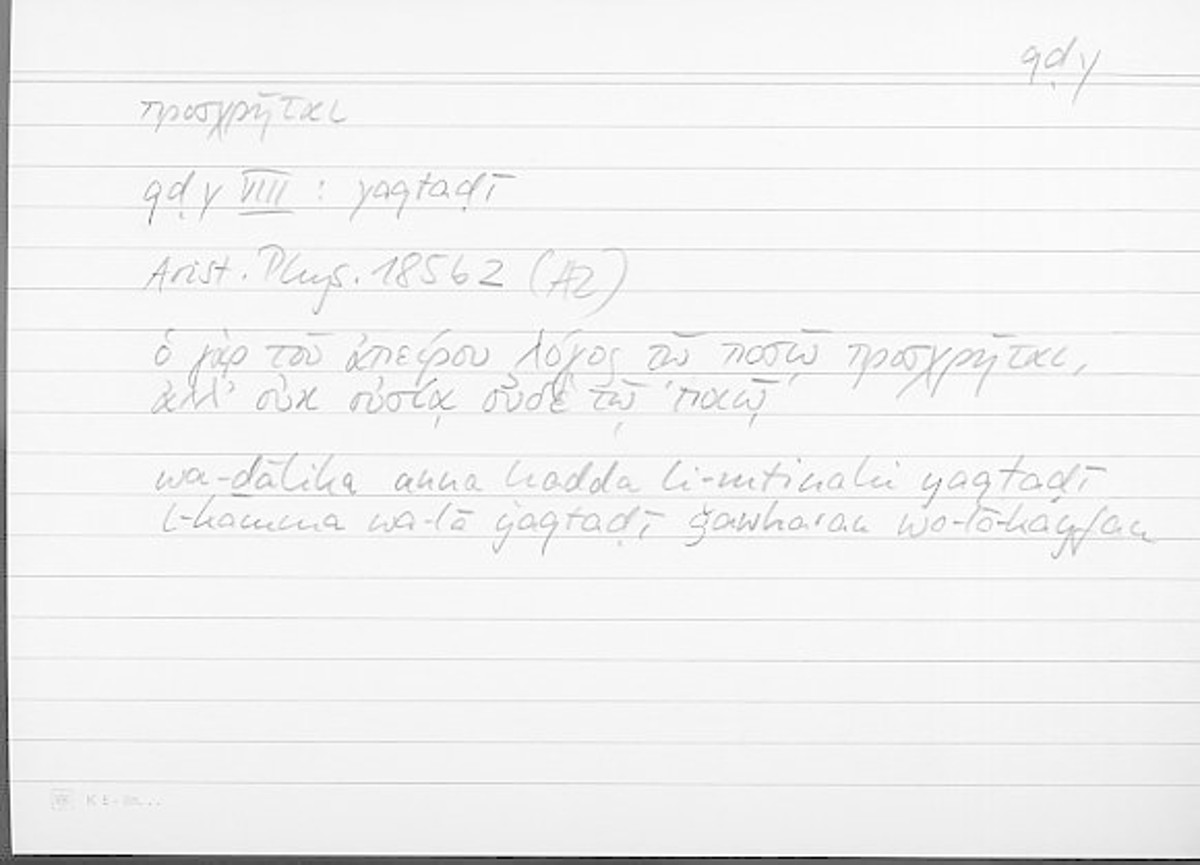 qḍy
προσχρῆται
qḍy VIII : yaqtaḍī
Arist. Phys. 185b2 (A2)
ὁ γὰρ τοῦ ἀπείρου λόγος τῷ ποσῷ προσχρῆται,
ἀλλ' οὐκ οὐσίᾳ οὐδὲ τῷ ποιῷ
wa-ḏālika anna yaqtaḍī
l-kamma wa-lā yaqtaḍī ǧawharan wa-lā kayfan